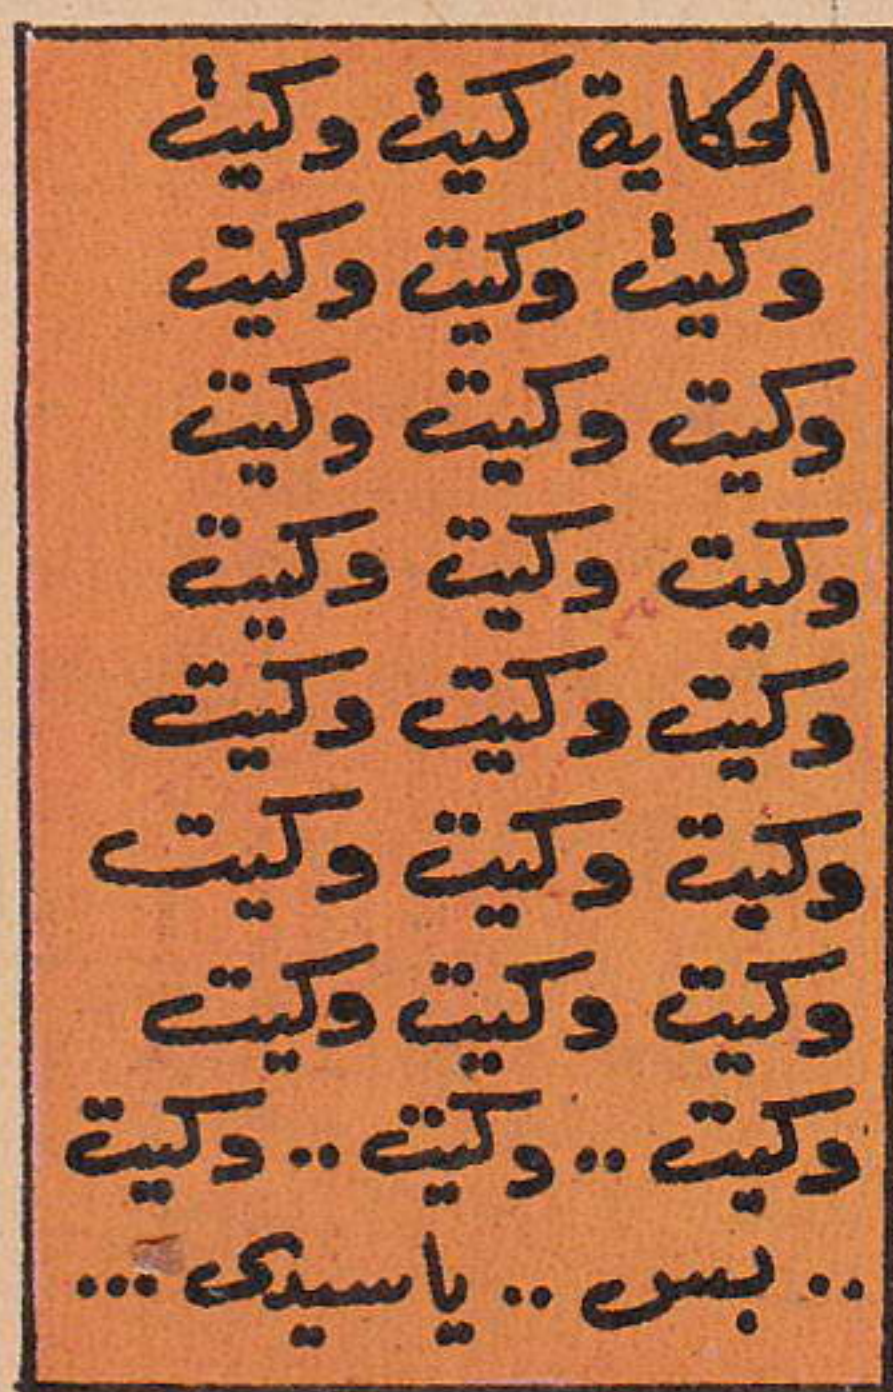 الحكاية كيت وكيت
وكيت وكيت وكيت
وكيت وكيت وكيت
وكيت وكيت وكيت
وكيت وكيت وكيت
وكيت وكيت وكيت
وكيت وكيت وكيت
وكيت .. وكيت .. وكيت
.. بس .. يا سيدى ...